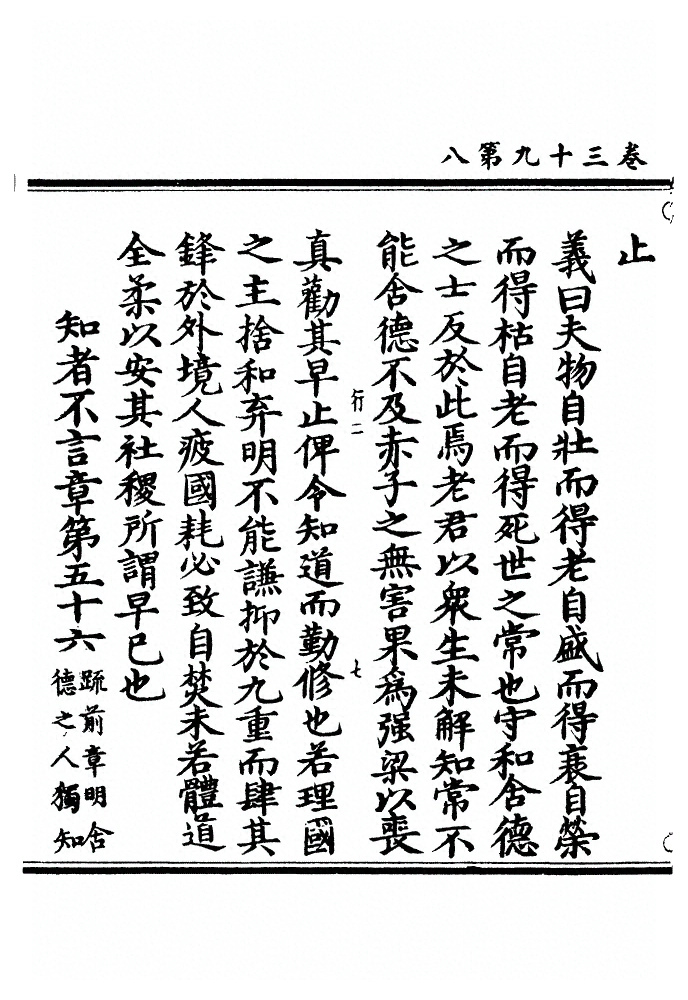 卷三十九第八
止
義曰夫物自壯而得老自盛而得衰自榮
而得枯自老而得死世之常也守和含德
之士反於此焉老君以衆生未解知常不
能含德不及赤子之無害果為强梁以喪
行二
七
真勸其早止俾令知道而勤修也若理國
之主捨和弃明不能謙抑於九重而肆其
鋒於外境人疲國耗必致自焚未若體道
全柔以安其社稷所謂早已也
知者不言章第五十六
䟽前章明含
德之人獨知